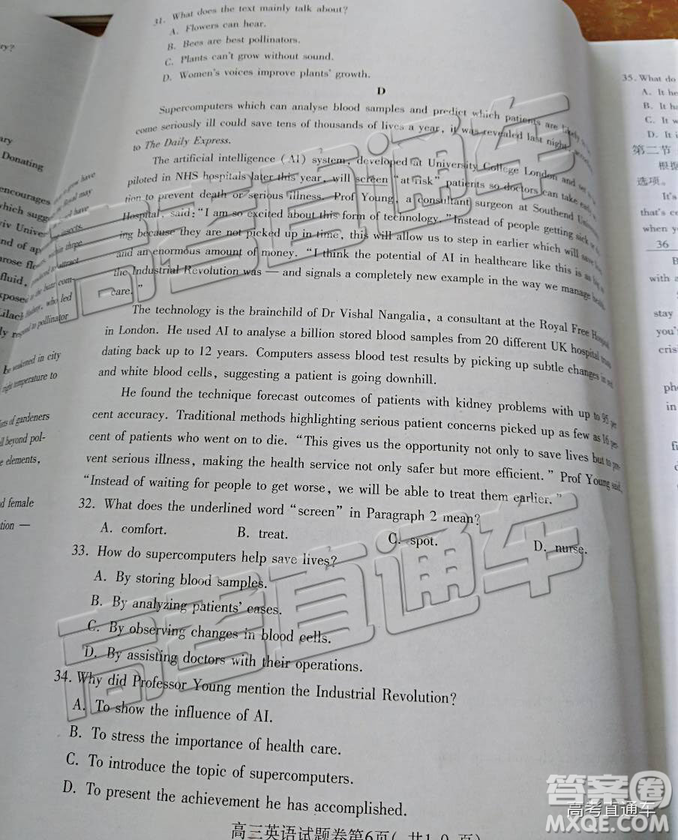 31. What does the text mainly talk about?
A. Flowers can hear.
B. Bees are best pollinators.
C. Plants can't grow without sound.
D. Women's voices improve plants' growth.
D
Supercomputers which can analyse blood samples and predict which patients are likely to
come seriously ill could save tens of thousands of lives a year, it was revealed last night
to The Daily Express.
The artificial intelligence (AI) system, developed at University College London and
piloted in NHS hospitals later this year, will screen "at risk" patients so doctors can take
tion to prevent death or serious illness. Prof Young, a consultant surgeon at Southend Univers
Hospital, said: "I am so excited about this form of technology. "Instead of people getting sick
ing because they are not picked up in time, this will allow us to step in earlier which will
and an enormous amount of money. "I think the potential of AI in healthcare like this is as
the Industrial Revolution was — and signals a completely new example in the way we manage
care."
The technology is the brainchild of Dr Vishal Nangalia, a consultant at the Royal Free Hospital
in London. He used AI to analyse a billion stored blood samples from 20 different UK hospital
dating back up to 12 years. Computers assess blood test results by picking up subtle changes in
and white blood cells, suggesting a patient is going downhill.
He found the technique forecast outcomes of patients with kidney problems with up to 95 per
cent accuracy. Traditional methods highlighting serious patient concerns picked up as few as 16 per
cent of patients who went on to die. "This gives us the opportunity not only to save lives but to pre-
vent serious illness, making the health service not only safer but more efficient." Prof Young said,
"Instead of waiting for people to get worse, we will be able to treat them earlier."
32. What does the underlined word "screen" in Paragraph 2 mean?
A. comfort. B. treat. C. spot. D. nurse.
33. How do supercomputers help save lives?
A. By storing blood samples.
B. By analyzing patients' cases.
C. By observing changes in blood cells.
D. By assisting doctors with their operations.
34. Why did Professor Young mention the Industrial Revolution?
A. To show the influence of AI.
B. To stress the importance of health care.
C. To introduce the topic of supercomputers.
D. To present the achievement he has accomplished.
高三英语试题卷第6页(共10页)
35. What do
A. It he
B. It h
C. It
D. It
第二节
根据
选项。
It's
that's c
when y
36
with a
stay
you'
cris
ph
in
ry?
ary
Donating
encourages
iv Univer
nd of ap
rose fl
fluid,
xpose
Lilach
ly respond to pollinator
be weakened in city
right temperature to
lots of gardeners
ll beyond pol-
e elements,
d female
tion —
高考直通车
高考直通车
答案圈
高考直通车
MXQE.COM